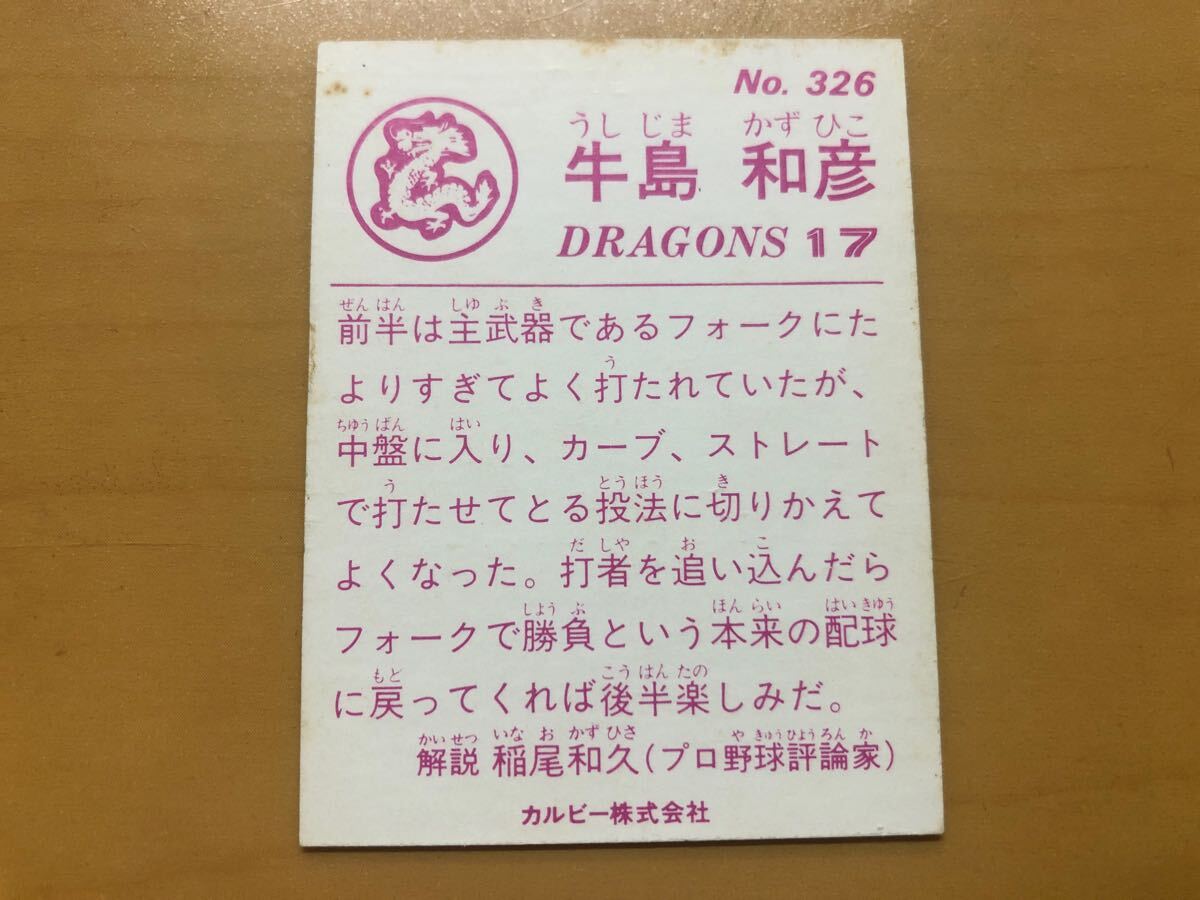 No. 326
うし じま かず ひこ
牛島 和彦
DRAGONS 17
ぜん はん しゆ ぶ き
前半は主武器であるフォークにた
う
よりすぎてよく打たれていたが、
ちゆう ばん はい
中盤に入り、カーブ、ストレート
う とう ほう き
で打たせてとる投法に切りかえて
だ しや お こ
よくなった。打者を追い込んだら
しよう ぶ ほん らい はい きゆう
フォークで勝負という本来の配球
もど こう はん たの
に戻ってくれば後半楽しみだ。
かい せつ いな お かず ひさ や きゆう ひよう ろん か
解説 稲尾和久(プロ野球評論家)
カルビー株式会社